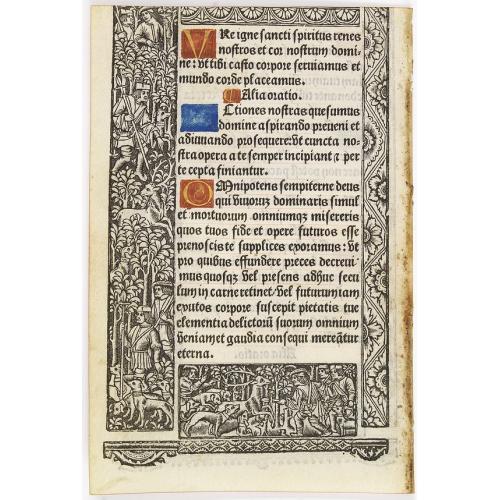 VRe igne sancti spiritus renes
nostros et cor nostrum domi-
ne: vt tibi casto corpore seruiamus et
mundo corde placeamus.
Alia oratio.
Ctiones nostras quesumus
domine aspirando preueni et
adiuuando prosequere: vt cuncta no-
stra opera a te semper incipiant ⁊ per
te cepta finiantur.
OMnipotens sempiterne deus
qui viuoruꝫ dominaris simul
et mortuorum omniumqꝫ misereris
quos tuos fide et opere futuros esse
prenoscis te supplices exoramus: vt
pro quibus effundere preces decreui
mus quosqꝫ vel presens adhuc secu
lum in carne retinet/ vel futurum iam
exutos corpore suscepit pietatis tue
clementia delictorū suorum omnium
veniam et gaudia consequi mereātur
eterna.